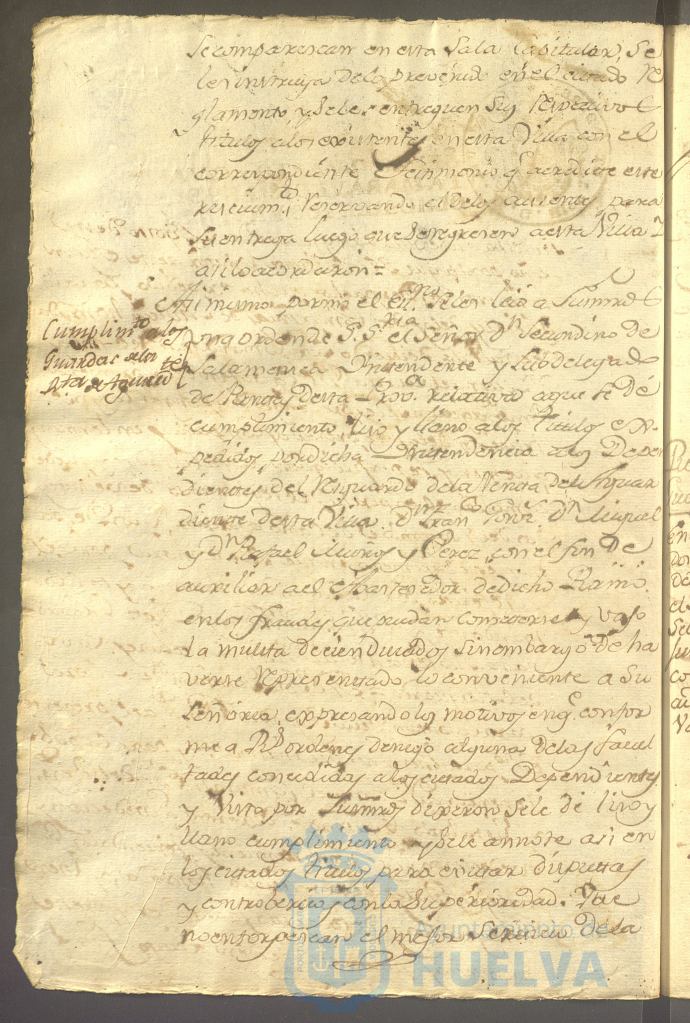 Se comparescan en esta Sala Capitular, Se
les instruya de lo prevenido en el citado Re
glamento, y Se les entreguen Sus respectivos
titulos a los existentes en esta Villa con el
correspondiente Testimonio q. acredite este
reservando el de los ausentes para
Su entrega luego que Se regresen a esta Villa
asi lo acordaron =
Asi mismo por mi el es.no Se les leio a Sus mrds
una orden de S. S.ria el Señor d.n Secundino de
Salamanca Yntendente y Subdelegado
de Rentas desta Prov.a relativa a que se dé
cumplimiento liso y llano a los titulos ex
pedidos por dicha Yntendencia a los Depen
dientes del Resguardo de la Renta del Aguar
diente desta Villa d.n Fran.co d.n Miguel
y d.n Rafael Muños y Perez, con el fin de
auxiliar a el de dicho Ramo
en los fraudes que puedan cometerse y vajo
la multa de cien ducados sin embargo de ha
verse representado lo conveniente a Su
Señoria, expresando los motivos en q. confor
me a R.s ordenes denego alguna de las facul
tades concedidas a los citados Dependientes
y Vista por Sus mrds dixeron Se le de liso y
llano cumplimiento y Se le annote asi en
los citados titulos para evitar disputtas
y controbercias con la Superioridad. Que
no entorpescan el mejor Servicio de la
Cumplim.to a los
Guardas de la
R.ta de Aguard.te
Ayuntamiento de
HUELVA